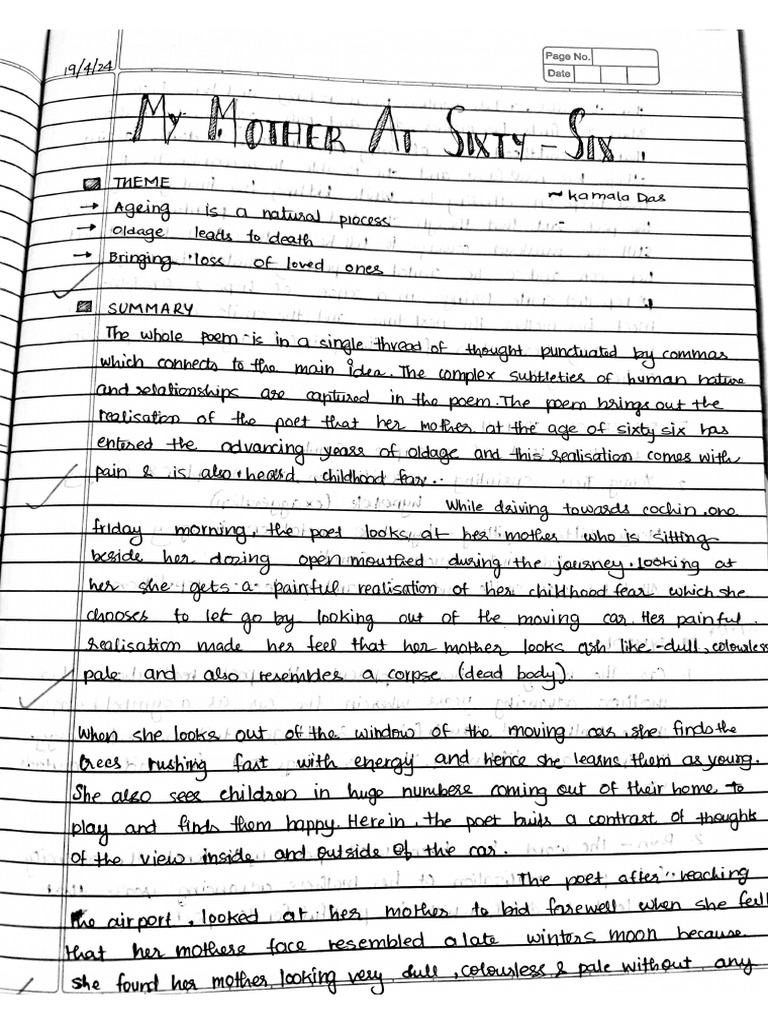 19/4/24
Page No.
Date
My Mother At Sixty-Six
THEME
~ Kamala Das
→ Ageing is a natural process
→ Oldage leads to death
→ Bringing loss of loved ones
SUMMARY
The whole poem is in a single thread of thought punctuated by commas
which connects to the main idea. The complex subtleties of human nature
and relationships are captured in the poem. The poem brings out the
realisation of the poet that her mother at the age of sixty six has
entered the advancing years of oldage and this realisation comes with
pain & is also heard, childhood fear..
While driving towards cochin, one
friday morning, the poet looks at her mother who is sitting
beside her dozing open mouthed during the journey. looking at
her she gets a painful realisation of her childhood fear which she
chooses to let go by looking out of the moving car. Her painful
realisation made her feel that her mother looks ash like - dull, colourless
pale and also resembles a corpse (dead body).
When she looks out of the window of the moving car, she finds the
trees rushing fast with energy and hence she learns them as young.
She also sees children in huge numbers coming out of their home to
play and finds them happy. Herein, the poet buils a contrast of thoughts
of the view inside and outside of the car.
The poet after reaching
the airport, looked at her mother to bid farewell when she feel
that her mothers face resembled a late winters moon because
she found her mother looking very dull, colourless & pale without any